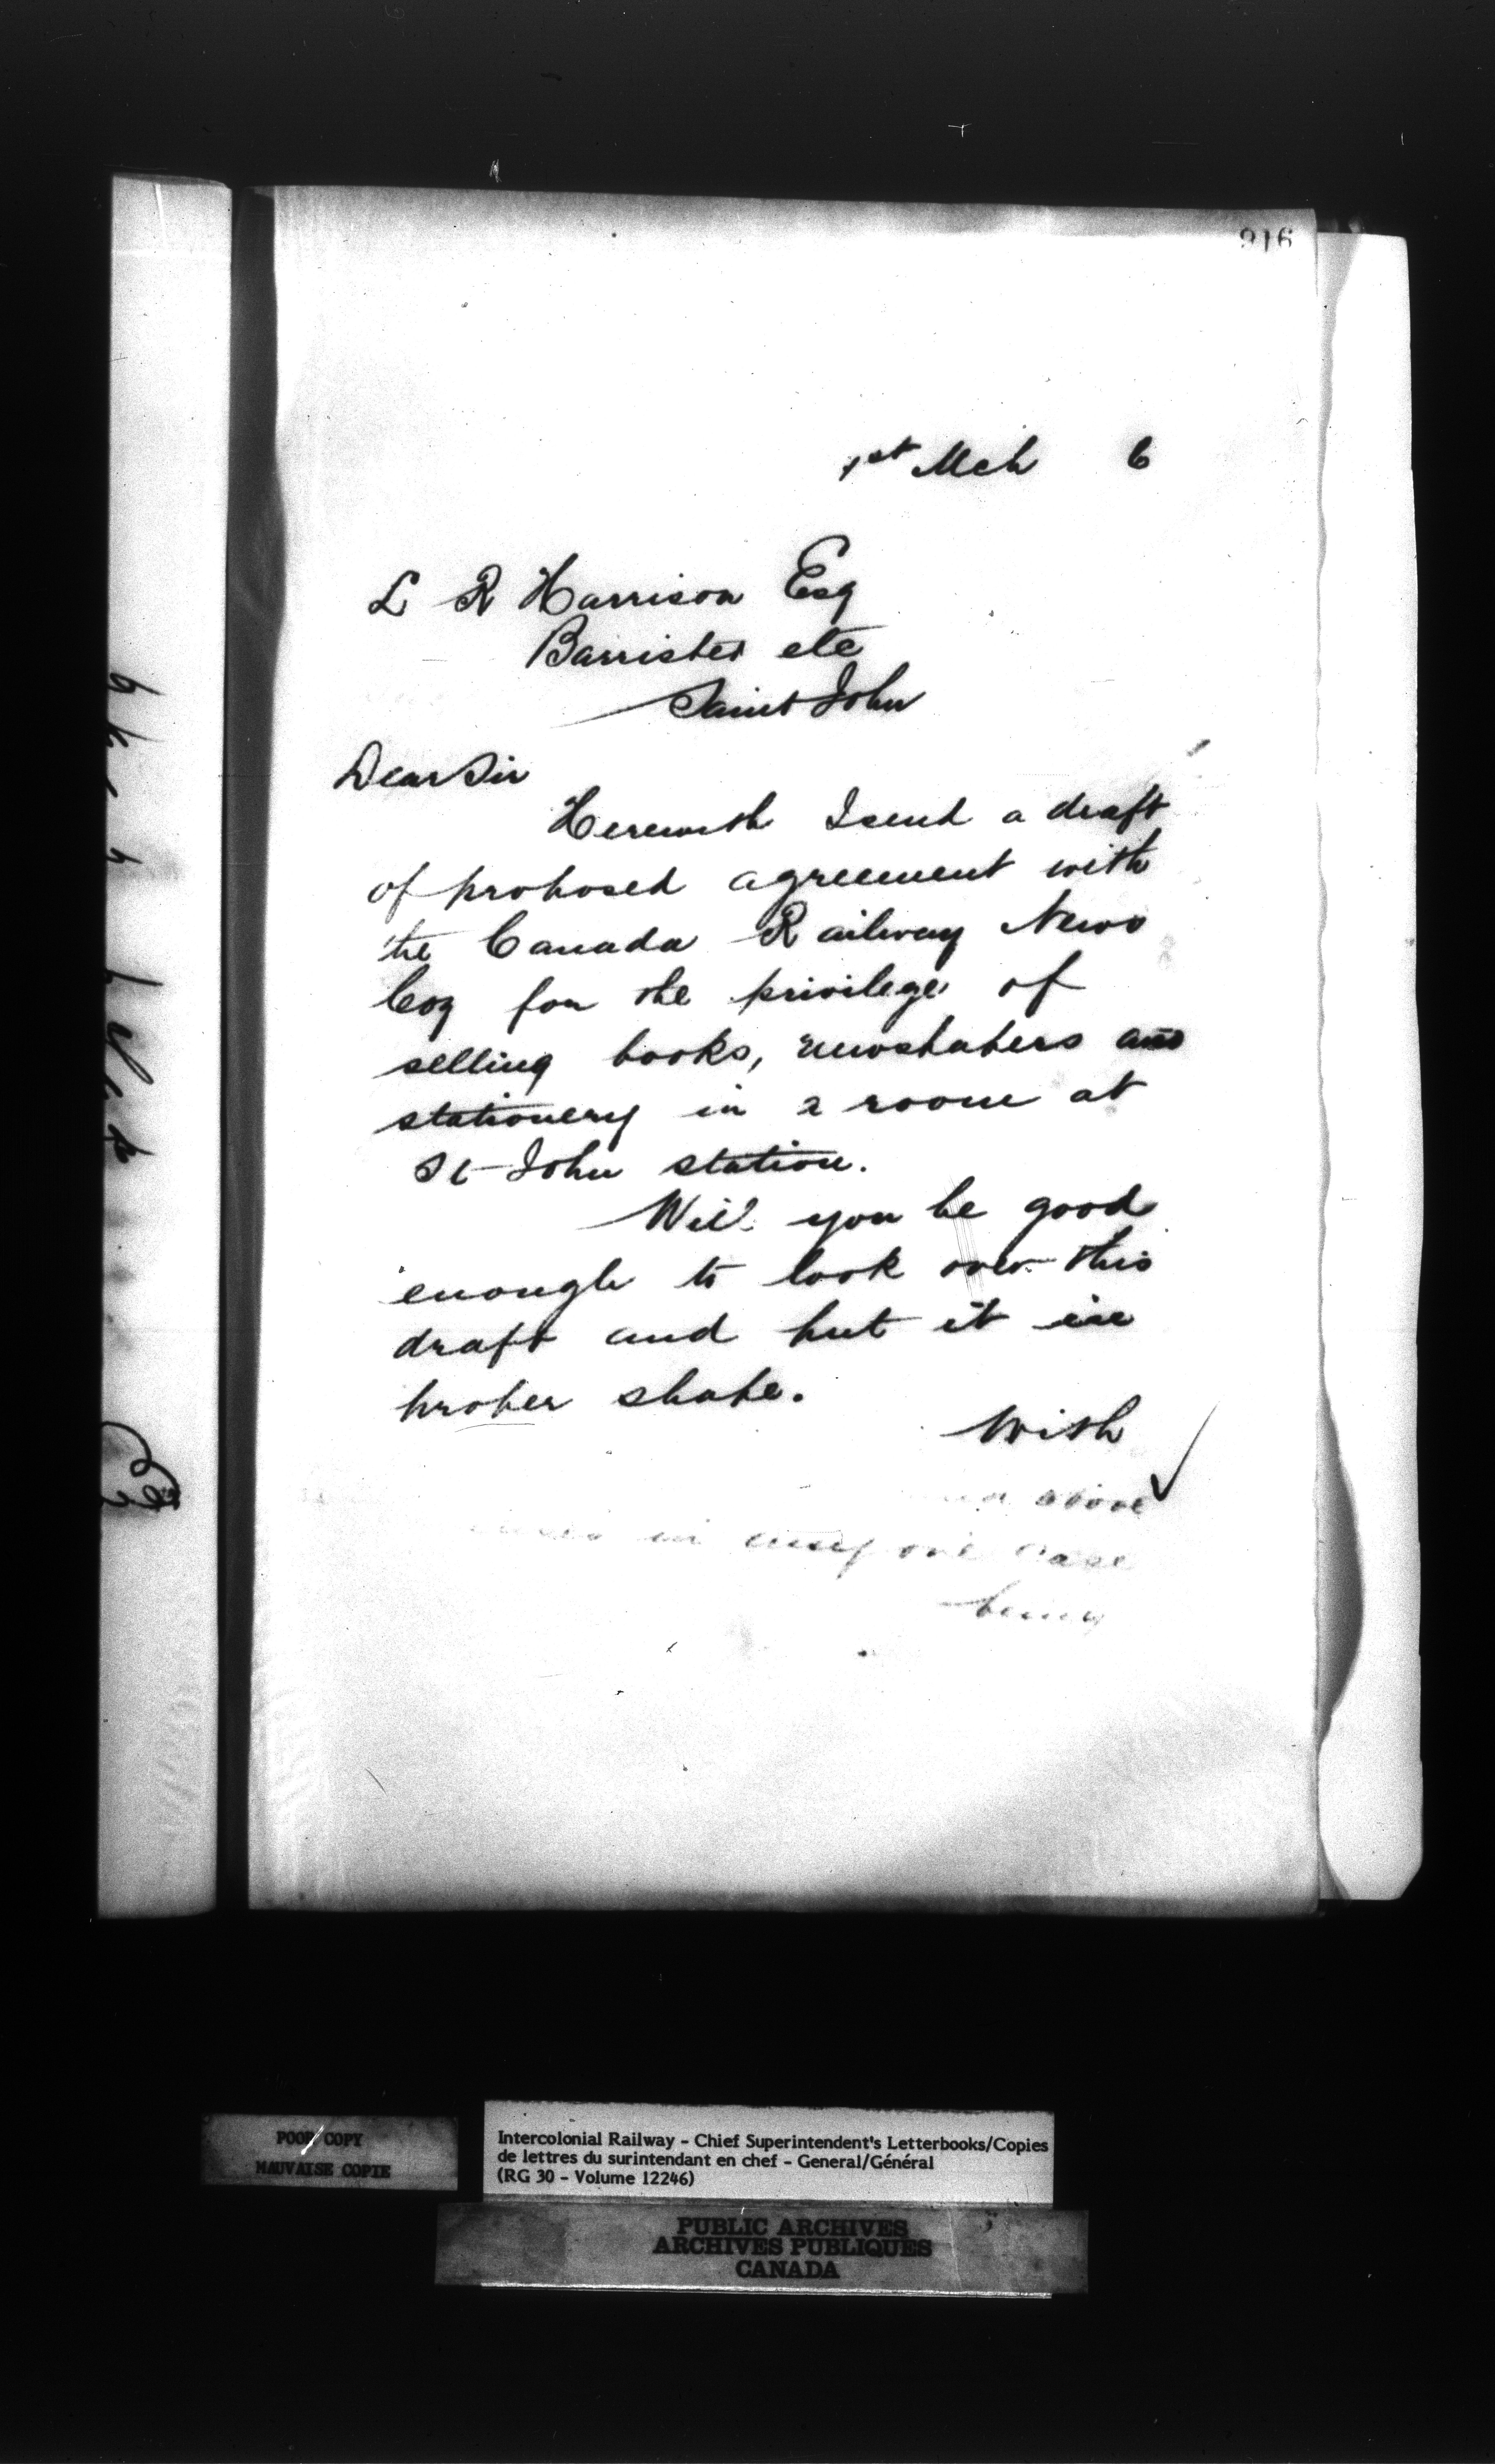 916
1st Mch 6
L R Harrison Esq
Barrister etc
Saint John
Dear Sir
Herewith I send a draft
of proposed agreement with
the Canada Railway News
Coy for the privilege of
selling books, newspapers and
stationery in a room at
St John station.
Will you be good
enough to look over this
draft and put it in
proper shape.
With
above
in one case
being
POOR COPY
MAUVAISE COPIE
Intercolonial Railway - Chief Superintendent's Letterbooks/Copies
de lettres du surintendant en chef - General/Général
(RG 30 - Volume 12246)
PUBLIC ARCHIVES
ARCHIVES PUBLIQUES
CANADA